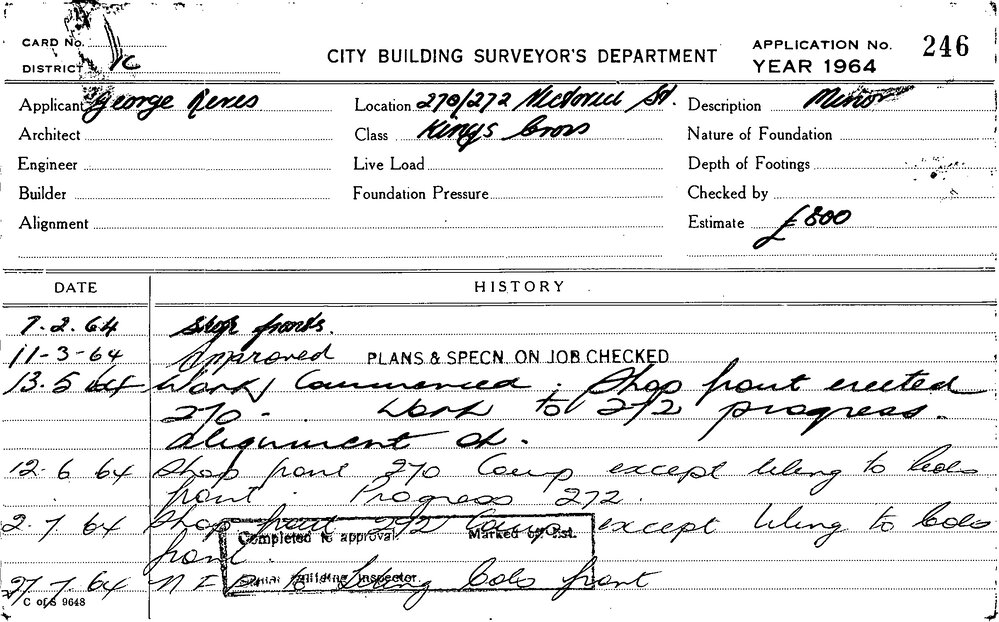 CARD No.
DISTRICT
CITY BUILDING SURVEYOR'S DEPARTMENT
APPLICATION No. 246
YEAR 1964
Applicant George
Location 270/272 Victoria St.
Description Minor
Architect
Class Kings Cross
Nature of Foundation
Engineer
Live Load
Depth of Footings
Builder
Foundation Pressure
Checked by
Alignment
Estimate £800
DATE HISTORY
7.2.64 Shop fronts.
11-3-64 Approved PLANS & SPECN. ON JOB CHECKED
13.5.64 Work Commenced. Shop front erected
270. Work to 272 progress.
Alignment
12.6.64 Shop front 270 Comp except tiling to
front. Progress 272.
2.7.64 Shop front 272 Comp except tiling to
front.
Completed to approval. Marked off list.
Building Inspector.
27.7.64 to Tiling front
C of S 9648